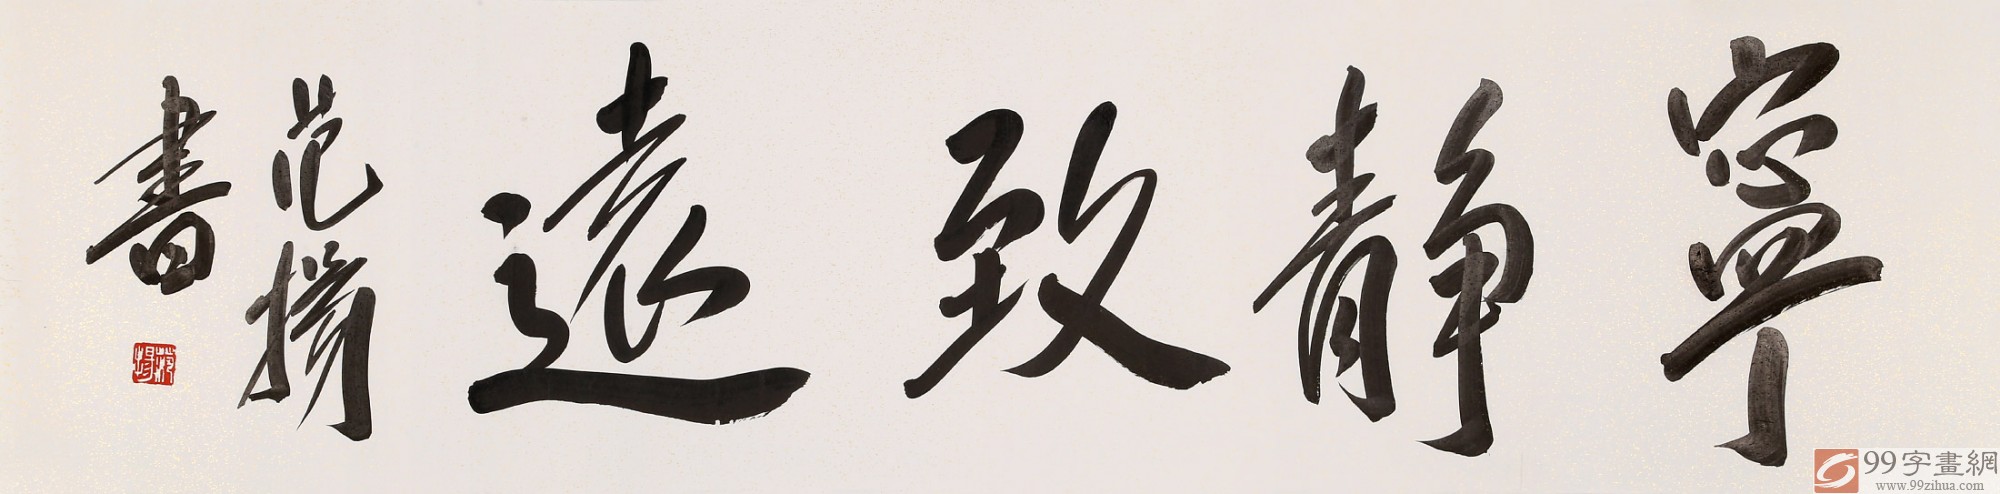 寧靜致遠
范揚
書
范揚
99字畫網
www.99zihua.com